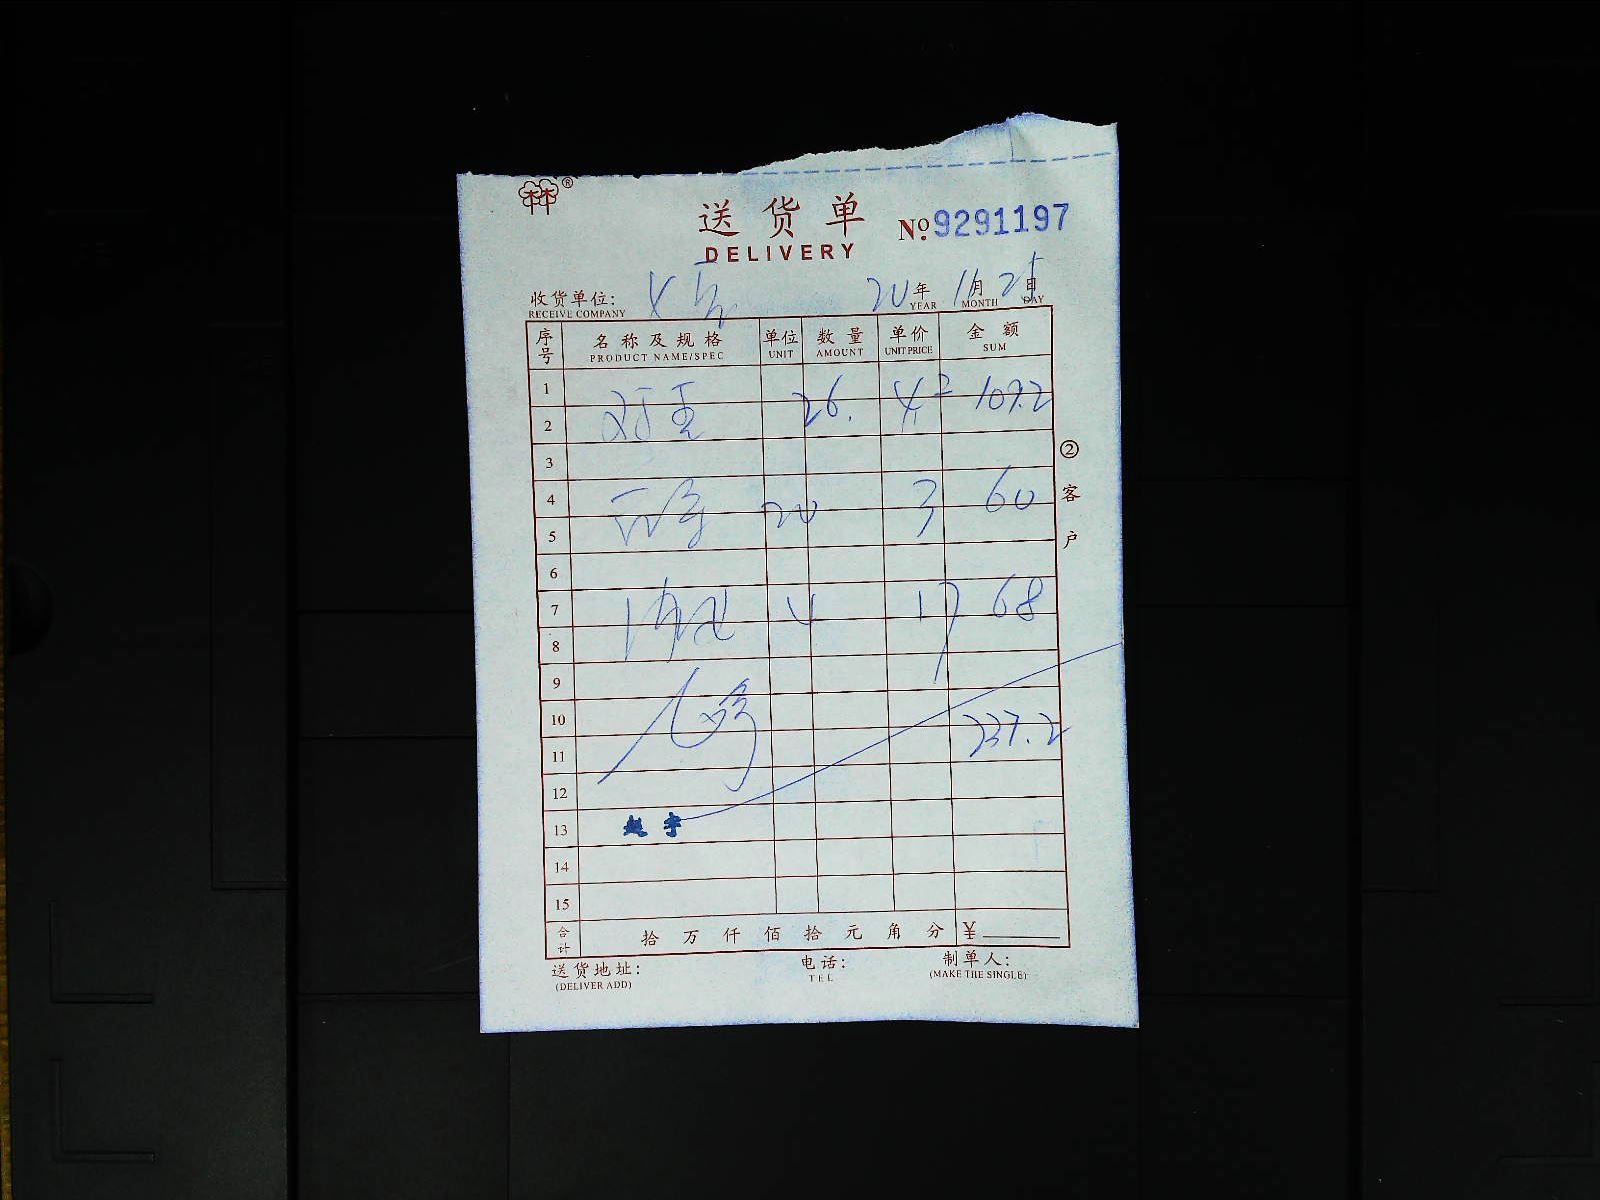 林®
送货单
DELIVERY
No. 9291197
收货单位: 20 年 11 月 25 日
RECEIVE COMPANY YEAR MONTH DAY
序号 名称及规格 单位 数量 单价 金额
PRODUCT NAME/SPEC UNIT AMOUNT UNIT PRICE SUM
1
26. 4.2 109.2
2
3
4
20 3 60
5
6
7
4 17 68
8
9
10
237.2
11
12
13 赵宇
14
15
合计 拾 万 仟 佰 拾 元 角 分 ¥
送货地址: 电话: 制单人:
(DELIVER ADD) TEL (MAKE THE SINGLE)
②客户